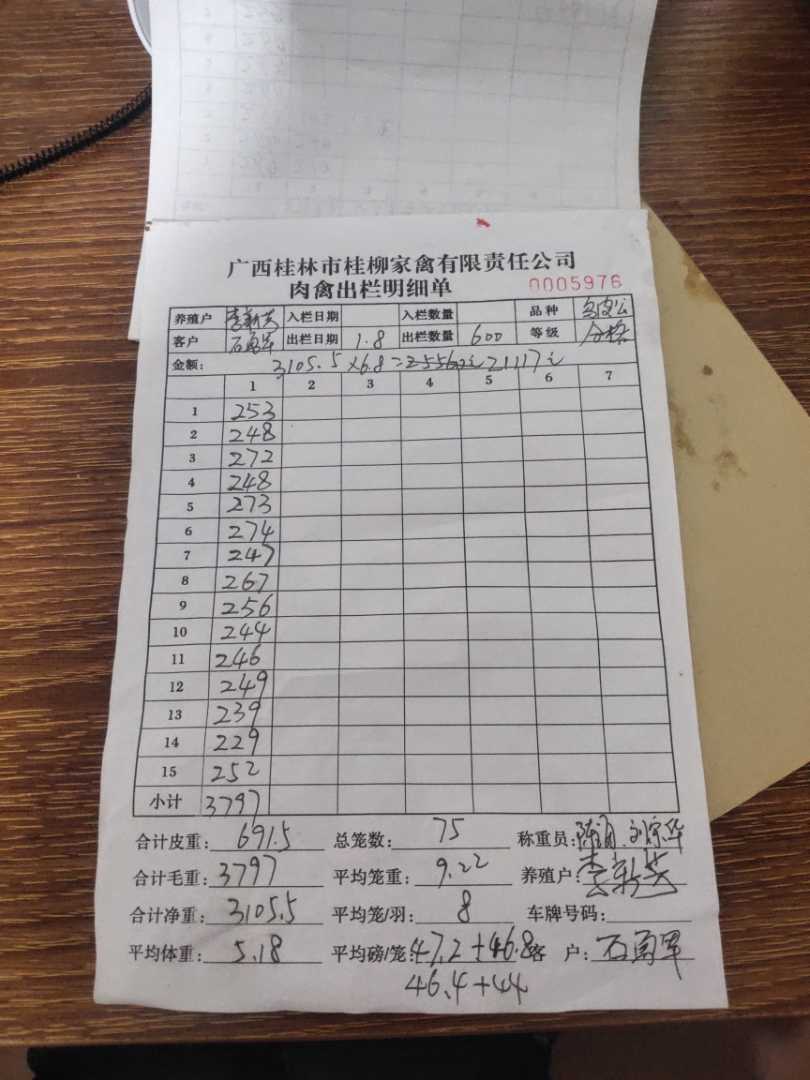 广西桂林市桂柳家禽有限责任公司
肉禽出栏明细单 0005976
养殖户 李新英 入栏日期 入栏数量 品种 乌皮公
客户 石勇军 出栏日期 1.8 出栏数量 600 等级 合格
金额: 3105.5×6.8= 21117元
1 2 3 4 5 6 7
1 253
2 248
3 272
4 248
5 273
6 274
7 247
8 267
9 256
10 244
11 246
12 249
13 239
14 229
15 252
小计 3797
合计皮重: 691.5 总笼数: 75 称重员:
合计毛重: 3797 平均笼重: 9.22 养殖户: 李新英
合计净重: 3105.5 平均笼/羽: 8 车牌号码:
平均体重: 5.18 平均磅/笼: 47.2+46.8 客户: 石勇军
46.4+44